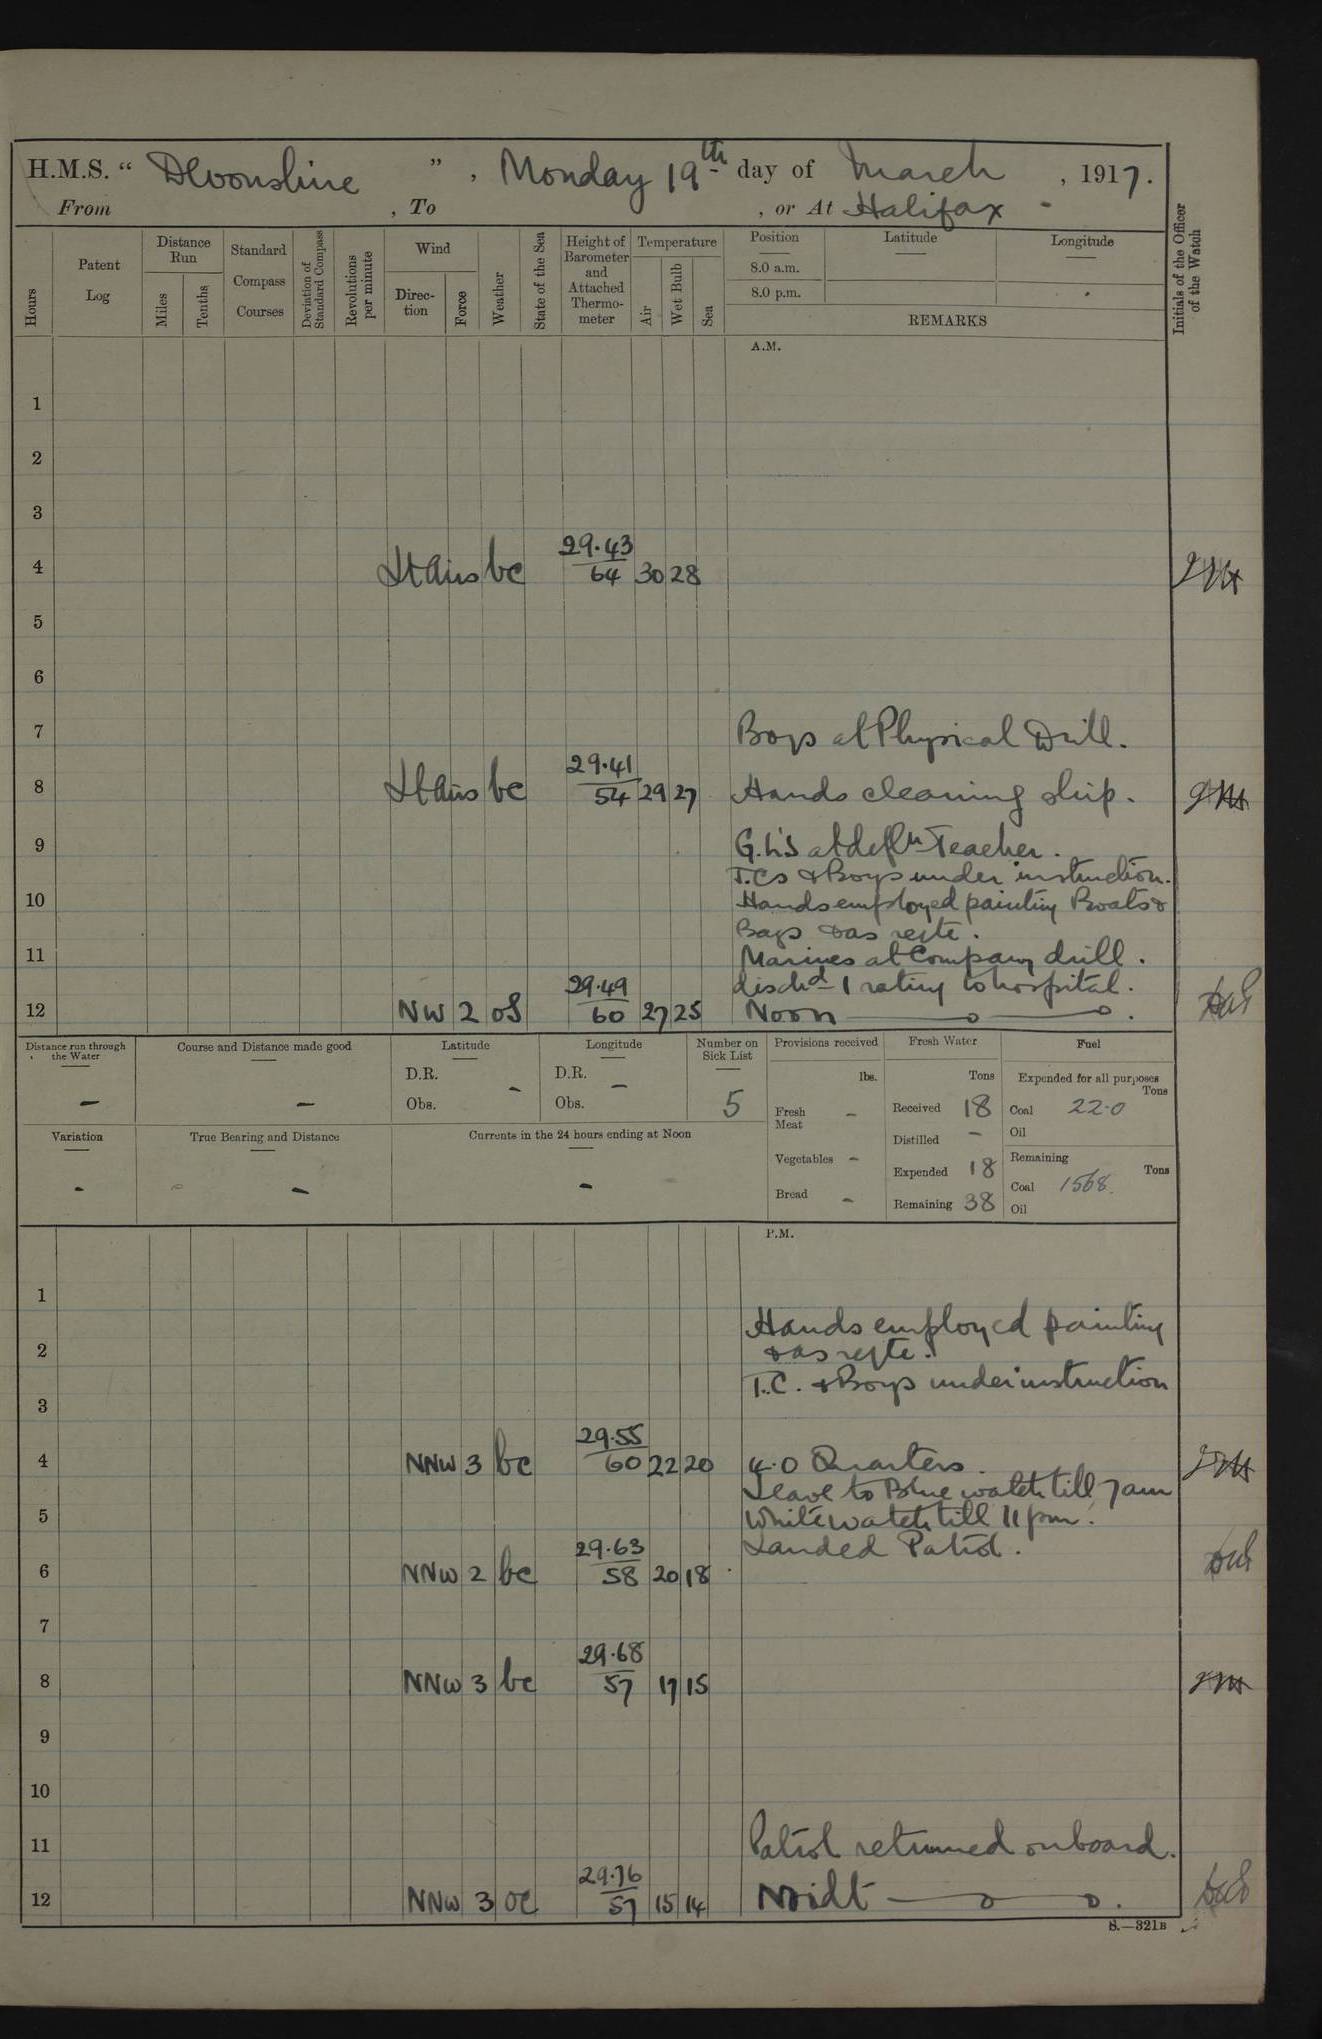 H.M.S. “ Devonshire ” , Monday 19th day of March , 1917.
From , To , or At Halifax -
Hours
Patent Log
Distance Run
Miles
Tenths
Standard Compass Courses
Deviation of Standard Compass
Revolutions per minute
Wind
Direction
Force
Weather
State of the Sea
Height of Barometer and Attached Thermometer
Temperature
Air
Wet Bulb
Sea
Position
8.0 a.m.
8.0 p.m.
Latitude
Longitude
REMARKS
Initials of the Officer of the Watch
A.M.
1
2
3
4 Lt Airs bc 29.43 64 30 28
5
6
7 Boys at Physical Drill.
8 Lt airs bc 29.41 54 29 27 Hands cleaning ship.
9 G.L's at defln Teacher.
T.Cs & Boys under instruction.
10 Hands employed painting Boats &
Bays & as reqte.
11 Marines at Company drill.
dischd 1 rating to hospital.
12 NW 2 os 29.49 60 27 25 Noon
Distance run through the Water
-
Course and Distance made good
-
Latitude
D.R. -
Obs.
Longitude
D.R. -
Obs.
Number on Sick List
5
Provisions received
lbs.
Fresh Meat -
Vegetables -
Bread -
Fresh Water
Tons
Received 18
Distilled -
Expended 18
Remaining 38
Fuel
Expended for all purposes
Tons
Coal 22.0
Oil
Remaining
Tons
Coal 1568.
Oil
Variation
-
True Bearing and Distance
-
Currents in the 24 hours ending at Noon
-
P.M.
1
Hands employed painting
2 & as reqte.
T.C. & Boys under instruction
3
4 NNW 3 bc 29.55 60 22 20 4.0 Quarters.
Leave to Blue watch till 7am
5 White watch till 11 pm.
Landed Patrol.
6 NNW 2 bc 29.63 58 20 18
7
8 NNW 3 bc 29.68 57 17 15
9
10
11 Patrol returned onboard.
12 NNW 3 oc 29.76 57 15 14 Midt
S.—321B